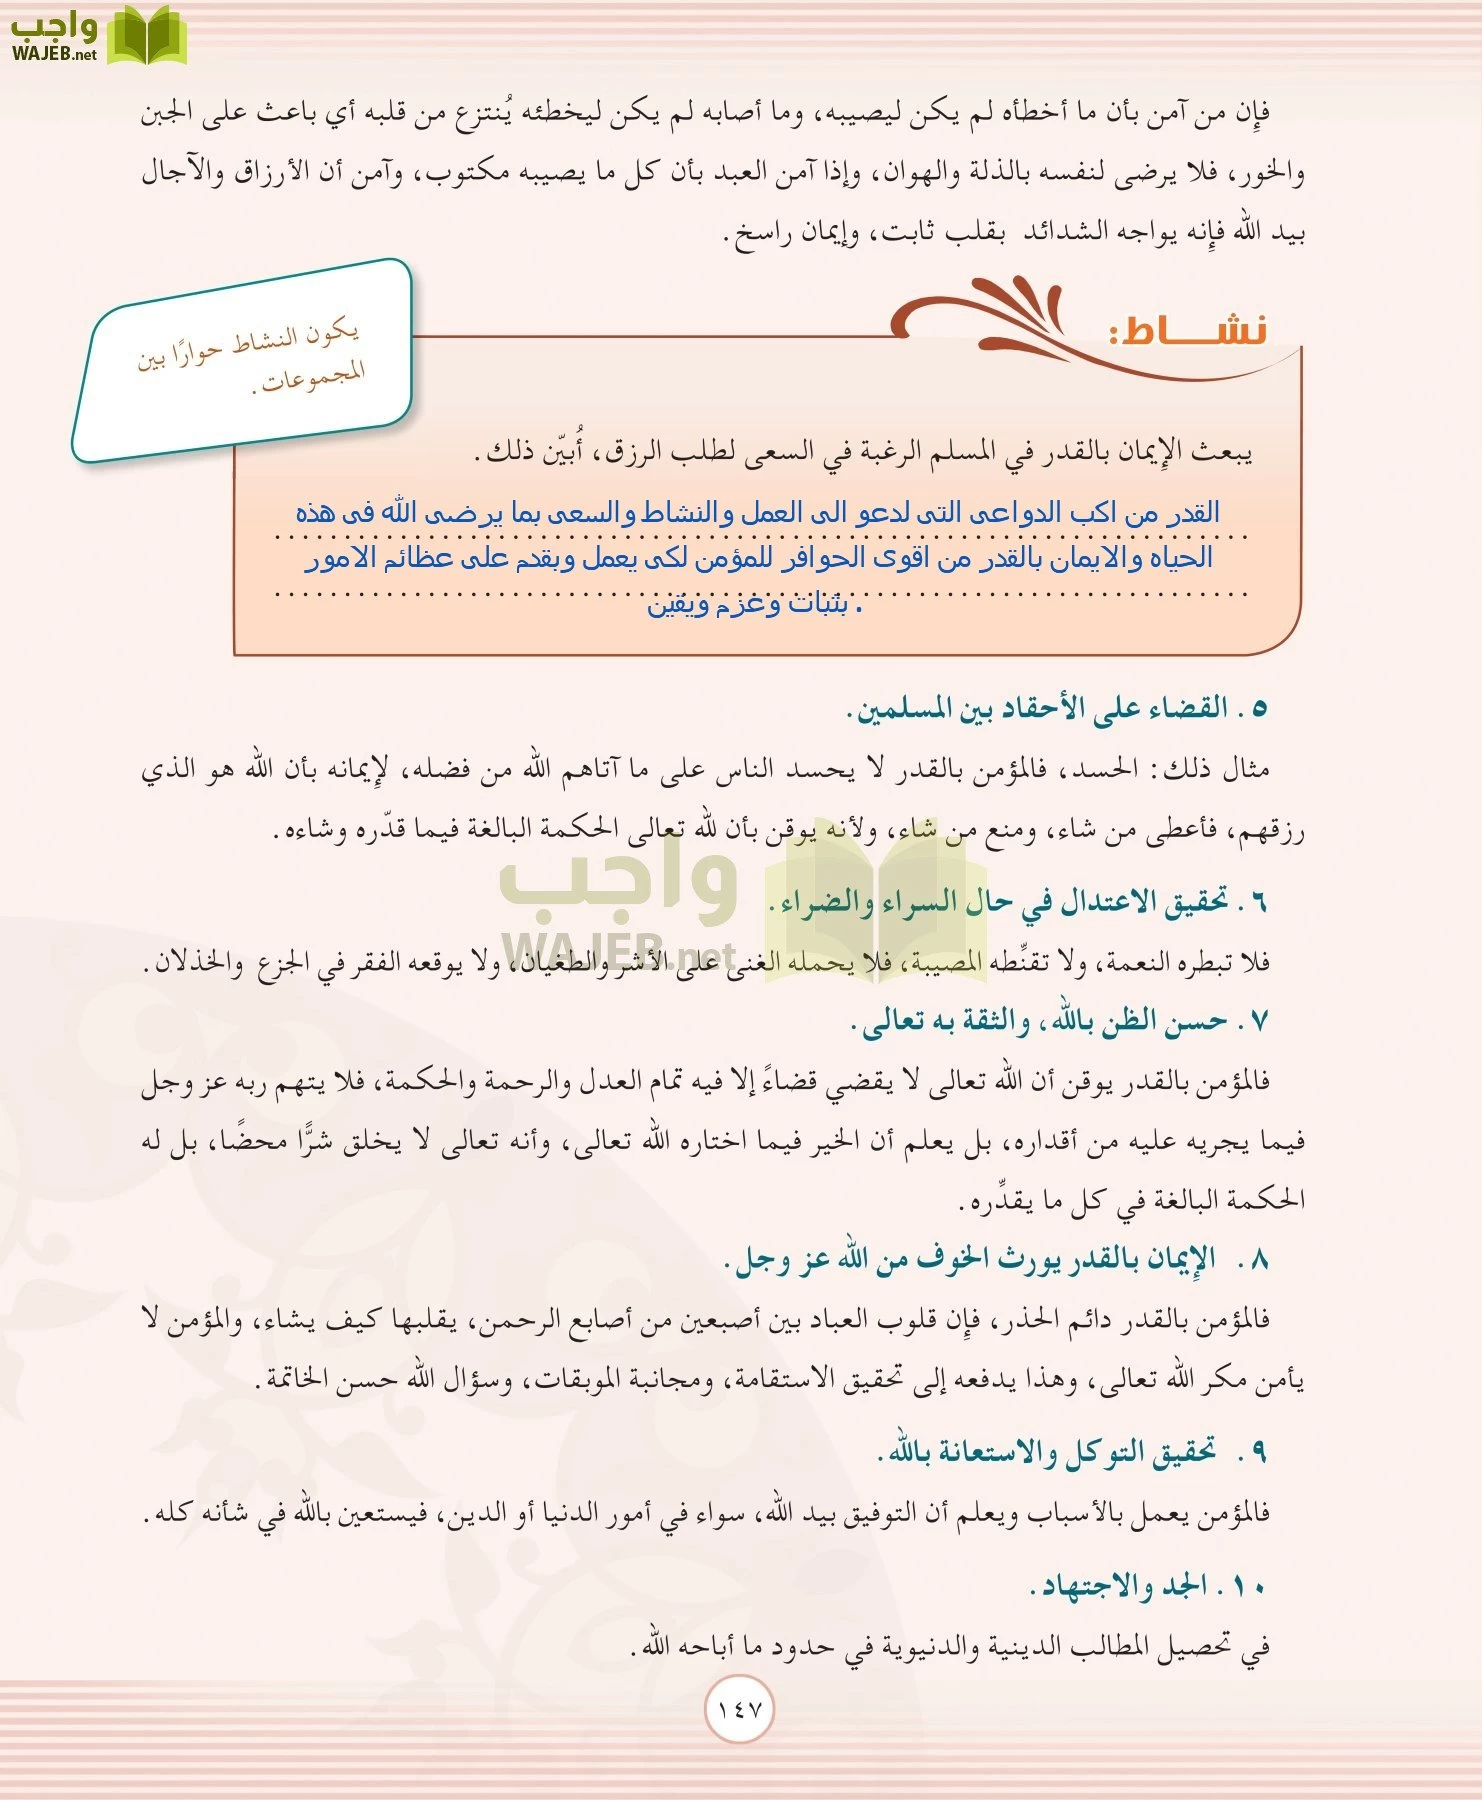 واجب
WAJEB.net
فإن من آمن بأن ما أخطأه لم يكن ليصيبه، وما أصابه لم يكن ليخطئه يُنتزع من قلبه أي باعث على الجبن
والخور، فلا يرضى لنفسه بالذلة والهوان، وإذا آمن العبد بأن كل ما يصيبه مكتوب، وآمن أن الأرزاق والآجال
بيد الله فإنه يواجه الشدائد بقلب ثابت، وإيمان راسخ.
نشـــاط:
يكون النشاط حوارًا بين
المجموعات.
يبعث الإيمان بالقدر في المسلم الرغبة في السعى لطلب الرزق، أُبيّن ذلك.
القدر من اكب الدواعى التى لدعو الى العمل والنشاط والسعى بما يرضى الله فى هذه
الحياه والايمان بالقدر من اقوى الحوافر للمؤمن لكى يعمل وبقدم على عظائم الامور
بثبات وعزم ويقين .
٥. القضاء على الأحقاد بين المسلمين.
مثال ذلك: الحسد، فالمؤمن بالقدر لا يحسد الناس على ما آتاهم الله من فضله، لإيمانه بأن الله هو الذي
رزقهم، فأعطى من شاء، ومنع من شاء، ولأنه يوقن بأن لله تعالى الحكمة البالغة فيما قدّره وشاءه.
واجب
WAJEB.net
٦. تحقيق الاعتدال في حال السراء والضراء.
فلا تبطره النعمة، ولا تقنِّطه المصيبة، فلا يحمله الغنى على الأشر والطغيان، ولا يوقعه الفقر في الجزع والخذلان.
٧. حسن الظن بالله، والثقة به تعالى.
فالمؤمن بالقدر يوقن أن الله تعالى لا يقضي قضاءً إلا فيه تمام العدل والرحمة والحكمة، فلا يتهم ربه عز وجل
فيما يجريه عليه من أقداره، بل يعلم أن الخير فيما اختاره الله تعالى، وأنه تعالى لا يخلق شرًّا محضًا، بل له
الحكمة البالغة في كل ما يقدِّره.
٨. الإيمان بالقدر يورث الخوف من الله عز وجل.
فالمؤمن بالقدر دائم الحذر، فإن قلوب العباد بين أصبعين من أصابع الرحمن، يقلبها كيف يشاء، والمؤمن لا
يأمن مكر الله تعالى، وهذا يدفعه إلى تحقيق الاستقامة، ومجانبة الموبقات، وسؤال الله حسن الخاتمة.
٩. تحقيق التوكل والاستعانة بالله.
فالمؤمن يعمل بالأسباب ويعلم أن التوفيق بيد الله، سواء في أمور الدنيا أو الدين، فيستعين بالله في شأنه كله.
١٠. الجد والاجتهاد.
في تحصيل المطالب الدينية والدنيوية في حدود ما أباحه الله.
١٤٧